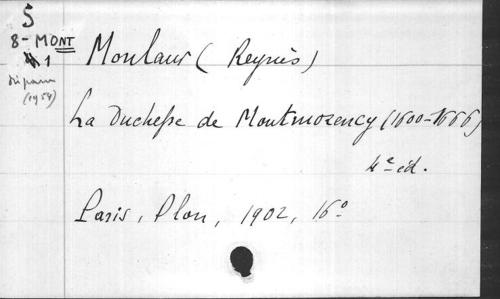 5
8- MONT
1
(1954)
Monlaur ( Reynès )
La Duchesse de Montmorency (1600-1666)
4e éd.
Paris, Plon, 1902, 16°